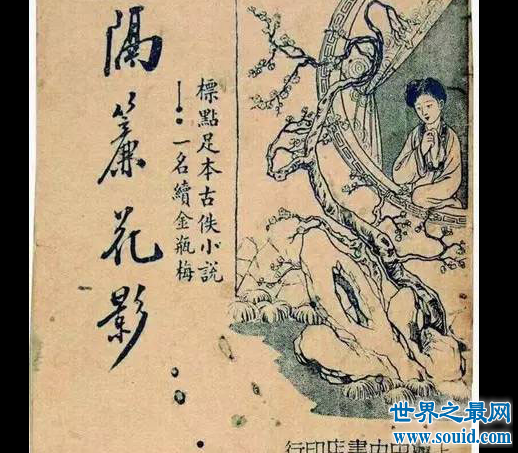 隔簾花影
標點足本古佚小說
一名續金瓶梅
中央書店印行
世界之最网
www.souid.com